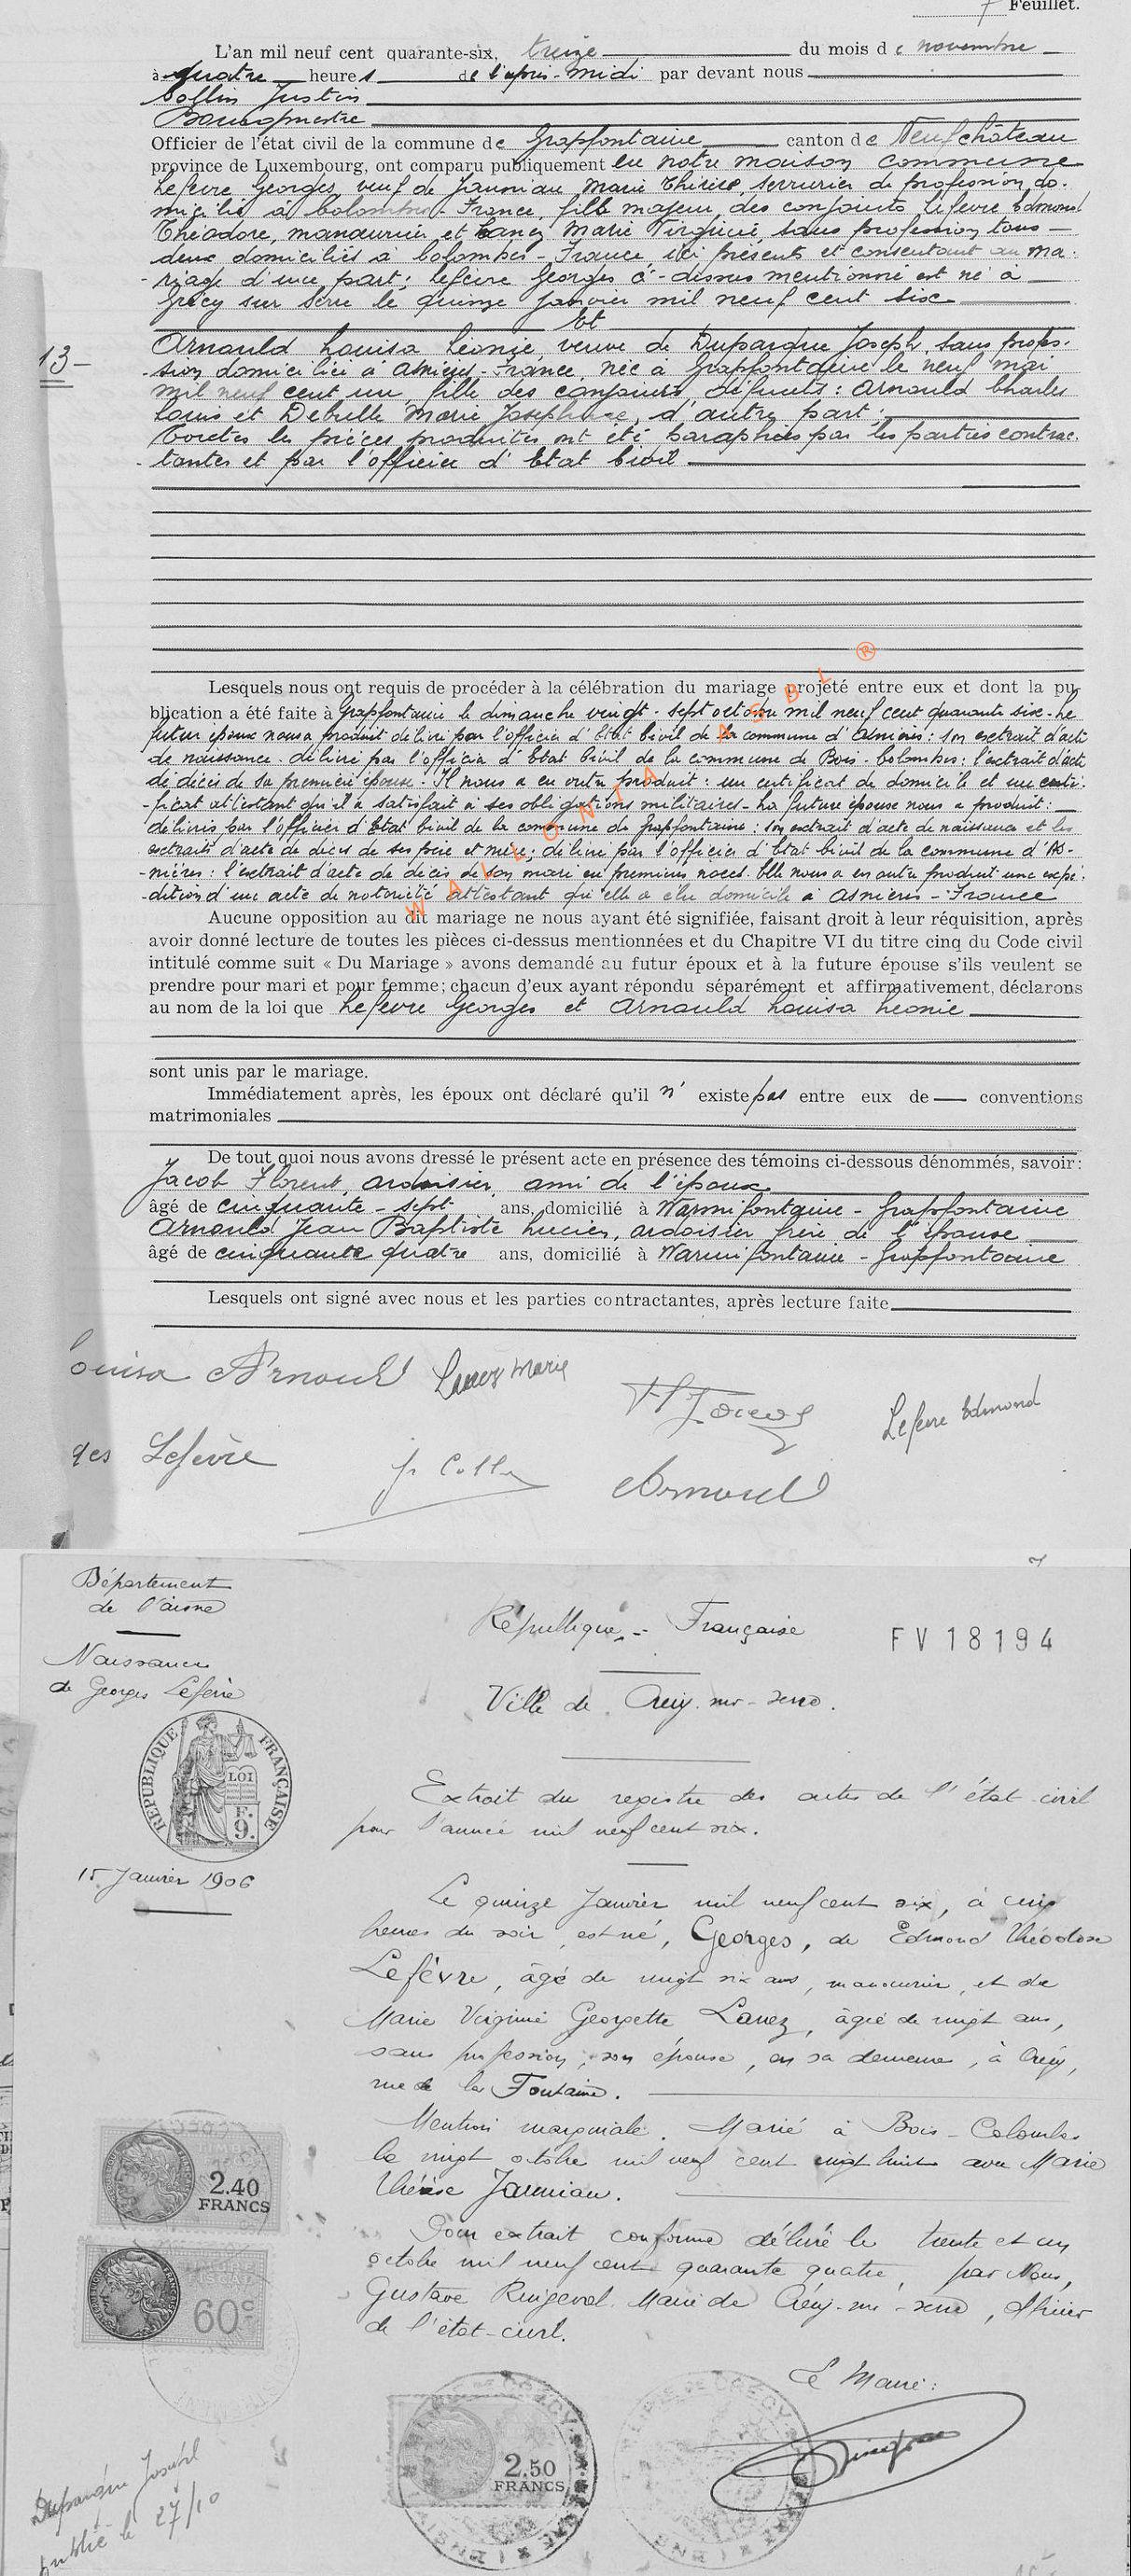 7 Feuillet.
L'an mil neuf cent quarante-six, treize du mois de novembre
à quatre heures de l'après-midi par devant nous
Collin Justin
Bourgmestre
Officier de l'état civil de la commune de Grapfontaine canton de Neufchâteau
province de Luxembourg, ont comparu publiquement en notre maison commune
Lefèvre Georges, veuf de Jauniau Marie Thérèse, serrurier de profession, do-
micilié à Colombes - France, fils majeur des conjoints Lefevre Edmond
Théodore, manœuvrier et Lanez Marie Virginie, sans profession tous
deux domiciliés à Colombes - France, ici présents et consentant au ma-
-riage d'une part; Lefèvre Georges ci-dessus mentionné est né à
Crécy sur Serre le quinze janvier mil neuf cent six
Et
13-
Arnould Louisa Léonie, veuve de Duparque Joseph, sans profes-
-sion domiciliée à Asnières - France, née à Grapfontaine le neuf mai
mil neuf cent un, fille des conjoints défunts: Arnould Charles
Louis et Debille Marie Josephine, d'autre part;
Toutes les pièces produites ont été paraphées par les parties contrac-
-tantes et par l'officier d'Etat Civil
Lesquels nous ont requis de procéder à la célébration du mariage projeté entre eux et dont la pu-
blication a été faite à Grapfontaine le dimanche vingt-sept octobre mil neuf cent quarante six. Le
futur époux nous a produit délivré par l'officier d'Etat Civil de la commune d'Asnières: son extrait d'acte
de naissance. délivré par l'officier d'Etat Civil de la commune de Bois-Colombes: l'extrait d'acte
de décès de sa première épouse. Il nous a en outre produit: un certificat de domicile et un certi-
-ficat attestant qu'il a satisfait à ses obligations militaires - La future épouse nous a produit:
délivrés par l'officier d'Etat Civil de la commune de Grapfontaine: son extrait d'acte de naissance et les
extraits d'acte de décès de ses père et mère; délivré par l'officier d'Etat Civil de la commune d'As-
-nières: l'extrait d'acte de décès de son mari en premières noces. Elle nous a en outre produit une expé-
-dition d'un acte de notoriété attestant qu'elle a élu domicile à Asnières - France
WALLONIA ASBL ®
Aucune opposition au dit mariage ne nous ayant été signifiée, faisant droit à leur réquisition, après
avoir donné lecture de toutes les pièces ci-dessus mentionnées et du Chapitre VI du titre cinq du Code civil
intitulé comme suit « Du Mariage » avons demandé au futur époux et à la future épouse s'ils veulent se
prendre pour mari et pour femme; chacun d'eux ayant répondu séparément et affirmativement, déclarons
au nom de la loi que Lefevre Georges et Arnould Louisa Léonie
sont unis par le mariage.
Immédiatement après, les époux ont déclaré qu'il n'existe pas entre eux de conventions
matrimoniales
De tout quoi nous avons dressé le présent acte en présence des témoins ci-dessous dénommés, savoir:
Jacob Florent, ardoisier, ami de l'époux
âgé de cinquante-sept ans, domicilié à Warmifontaine - Grapfontaine
Arnould Jean Baptiste Lucien, ardoisier frère de l'épouse
âgé de cinquante quatre ans, domicilié à Warmifontaine - Grapfontaine
Lesquels ont signé avec nous et les parties contractantes, après lecture faite
Louisa Arnould Lanez Marie Jacob Lefevre Edmond
ges Lefèvre J. Collin Arnould
Département
de l'aisne
Naissance
de Georges Lefèvre
RÉPUBLIQUE FRANÇAISE
LOI
F.
9.
15 Janvier 1906
République - Française
FV18194
Ville de Crécy-sur-serre.
Extrait du registre des actes de l'état civil
pour l'année mil neuf cent six.
Le quinze Janvier mil neuf cent six, à cinq
heures du soir, est né, Georges, de Edmond Théodore
Lefèvre, âgé de vingt six ans, manouvrier, et de
Marie Virginie Georgette Lanez, âgée de vingt ans,
sans profession, son épouse, en sa demeure, à Crécy,
rue de la Fontaine.
Mention marginale. Marié à Bois-Colombes
le vingt octobre mil neuf cent vingt huit avec Marie
Thérèse Jauniau.
Pour extrait conforme délivré le trente et un
octobre mil neuf cent quarante quatre, par Nous,
Gustave Ringeval, Maire de Crécy-sur-serre, officier
de l'état-civil.
Le Maire:
2.40
FRANCS
60c
2.50
FRANCS
Duparque Joseph
publié le 27/10